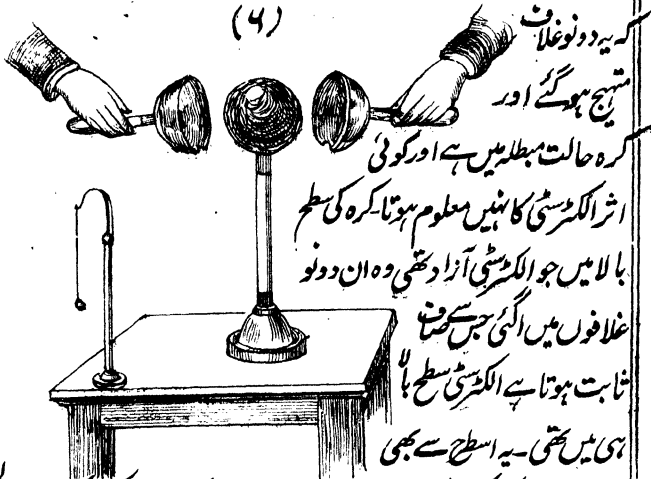 (۶)
کہ یہ دونو غلاف
متہیج ہو گئے اور
کرہ حالت مبطلہ میں ہے اور کوئی
اثر الکٹرسٹی کا نہیں معلوم ہوتا۔ کرہ کی سطح
بالا میں جو الکٹرسٹی آزاد تھی وہ ان دونو
غلافوں میں آگئی جس سے صاف
ثابت ہوتا ہے الکٹرسٹی سطح بالا
ہی میں تھی۔ یہ اسطرح سے بھی